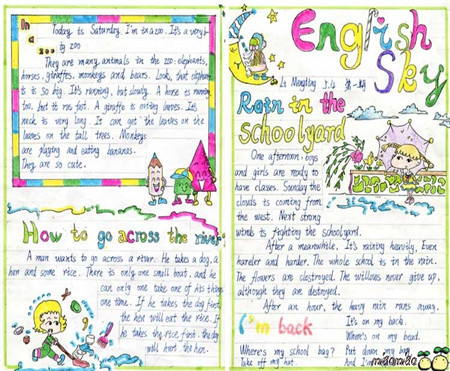 In a zoo
Today is Saturday. I'm in a zoo. It's a very
big zoo
They are many animals in the zoo: elephants,
horses, giraffes, monkeys and bears. Look, that elephant
is is so big. It's running, but slowly. A horse is running
too, but it runs fast. A giraffe is eating leaves. It's
neck is very long. It can get the leaves on the
leaves on the tall trees. Monkeys
are playing and eating bananas.
They are so cute.
How to go across the river
A man wants to go across a river. He takes a dog, a
hen and some rice. There is only one small boat, and he
can only one take one of his things
one time. If he takes the dog first,
the hen will eat the rice. If
he takes the rice first, the dog
will hurt the hen.
English
Sky
Rain in the
schoolyard
One afternoon, boys
and girls are ready to
have classes. Sounday the
clouds is coming from
the west. Next strong
winds is fighting the schoolyard.
After a meanwhile, It's raining heavily, Even
harder and harder. The whole school is in the rain.
The flowers are destroyed. The willows never give up,
although they are destroyed.
After an hour, the heavy rain runs away.
I'm back
Where's my school bag?
Take off my hat.
It's on my back.
Where's on my head.
Put down my bag
And I'm
miaomiao